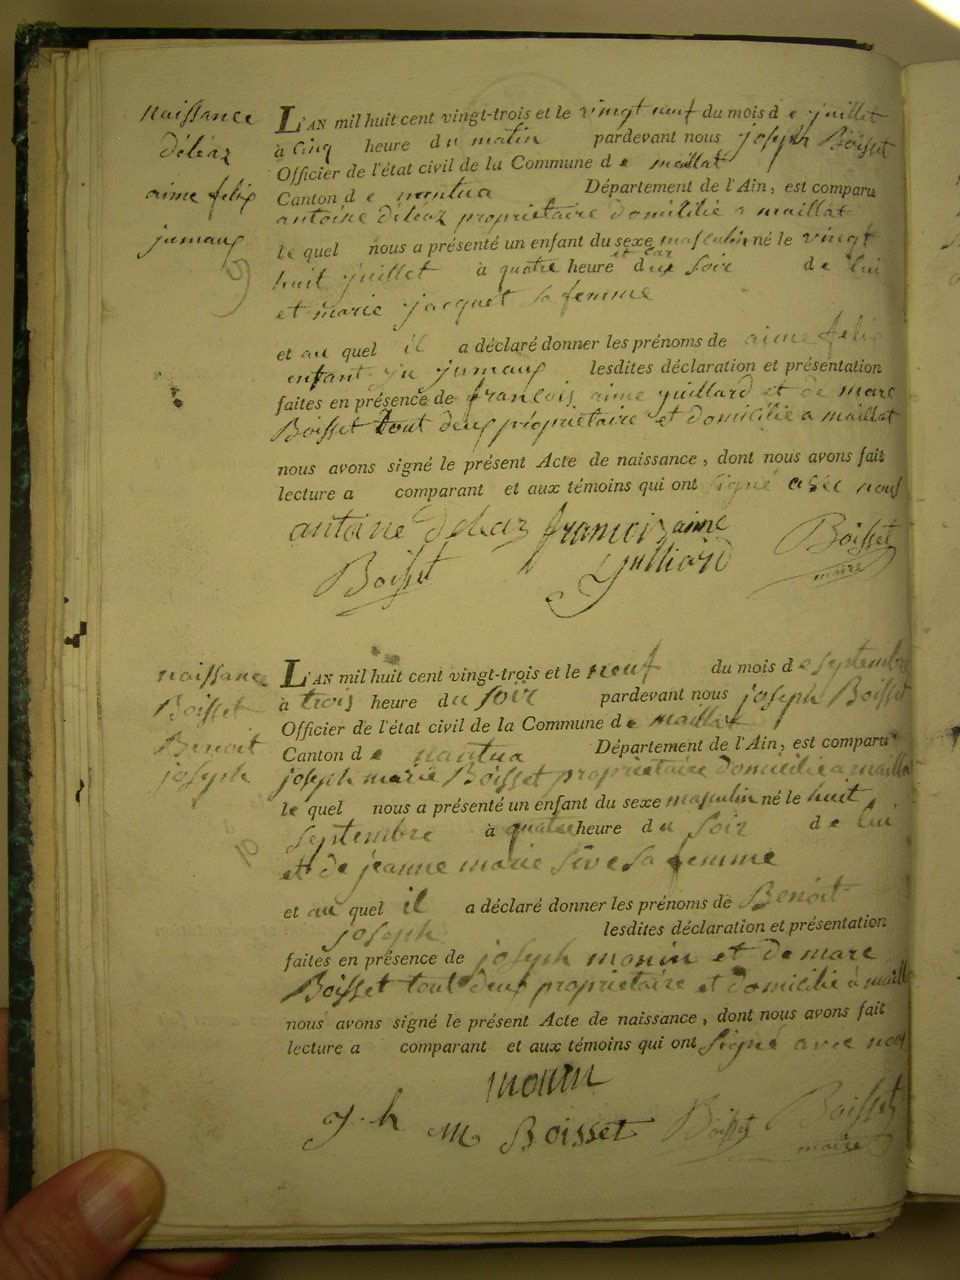 naissance
déléaz
aime felix
jumaux
9
L'AN mil huit cent vingt-trois et le vingt neuf du mois d e juillet
à cinq heure du matin pardevant nous joseph Boisset
Officier de l'état civil de la Commune d e maillat
Canton d e nantua Département de l'Ain, est comparu
antoine déléaz proprietaire domicilié a maillat
le quel nous a présenté un enfant du sexe masculin né le vingt
huit juillet à quatre heure et car du soir de lui
et marie jacquet sa femme
et au quel il a déclaré donner les prénoms de aime felix
enfant ju jumaux lesdites déclaration et présentation
faites en présence de francois aime juillard et de marc
Boisset tout deux propriétaire et domicilié a maillat
nous avons signé le présent Acte de naissance, dont nous avons fait
lecture a comparant et aux témoins qui ont signé avec nous
antoine deleaz francois aime
Boisset juilliard Boisset
maire
naissance
Boisset
Benoit
joseph
10
L'AN mil huit cent vingt-trois et le neuf du mois d e septembre
à trois heure du soir pardevant nous joseph Boisset
Officier de l'état civil de la Commune de maillat
Canton d e nantua Département de l'Ain, est comparu
joseph marie Boisset proprietaire domicilié a maillat
le quel nous a présenté un enfant du sexe masculin né le huit
septembre à quatre heure du soir de lui
et de jeanne marie sive sa femme
et au quel il a déclaré donner les prénoms de Benoit
joseph lesdites déclaration et présentation
faites en présence de joseph monin et de marc
Boisset tout deux proprietaire et domicilié à maill
nous avons signé le présent Acte de naissance, dont nous avons fait
lecture a comparant et aux témoins qui ont signé avec nous
monin
j. h m Boisset Boisset Boisset
maire